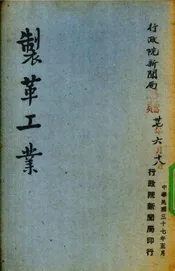 行政院新聞局
製革工業
行政院新聞局印行
中華民國三十七年五月